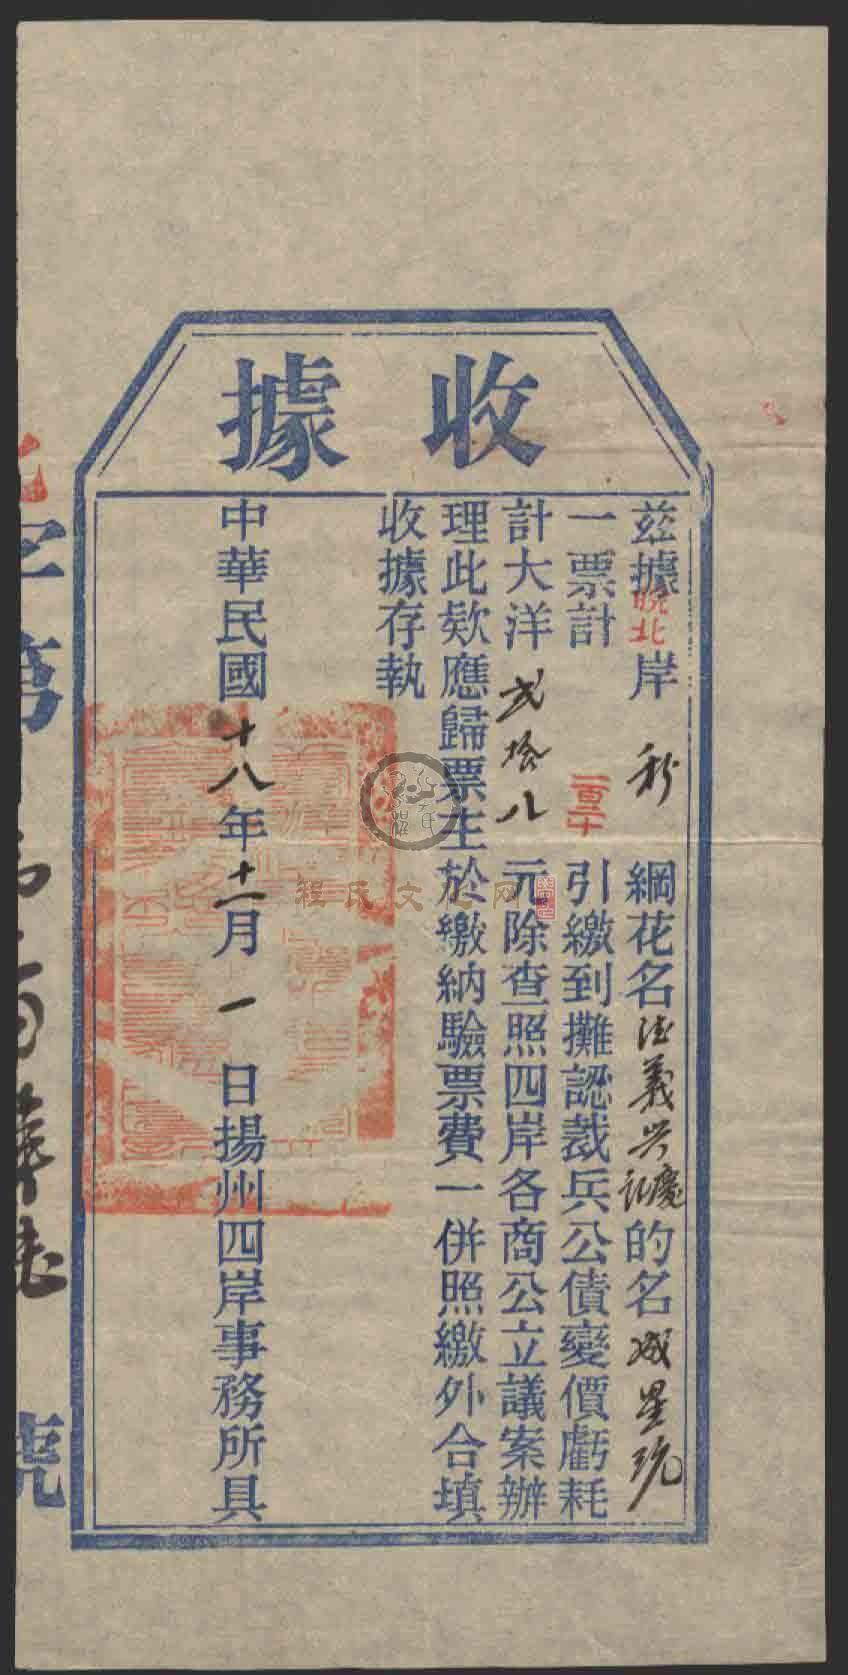 收據
茲據皖北岸 新 綱花名德義興慶記的名
一票計 一百二十 引繳到攤認裁兵公債變價虧耗
計大洋 貳拾八 元除查照四岸各商公立議案辦
理此欵應歸票主於繳納驗票費一併照繳外合填
收據存執
中華民國十八年十一月一日揚州四岸事務所具
字第
號
程氏文化网